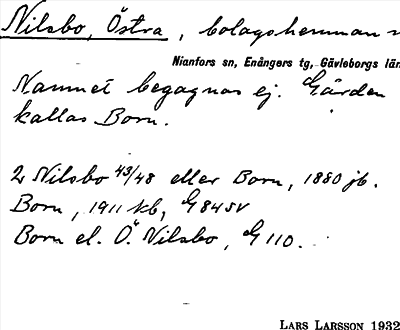 Nilsbo, Östra, bolagshemman
Nianfors sn, Enångers tg, Gävleborgs län
Namnet begagnas ej. Gården
kallas Born.
2 Nilsbo 43/48 eller Born, 1880 jb.
Born, 1911 kb, G 84 SV
Born el. Ö. Nilsbo, G 110.
LARS LARSSON 1932